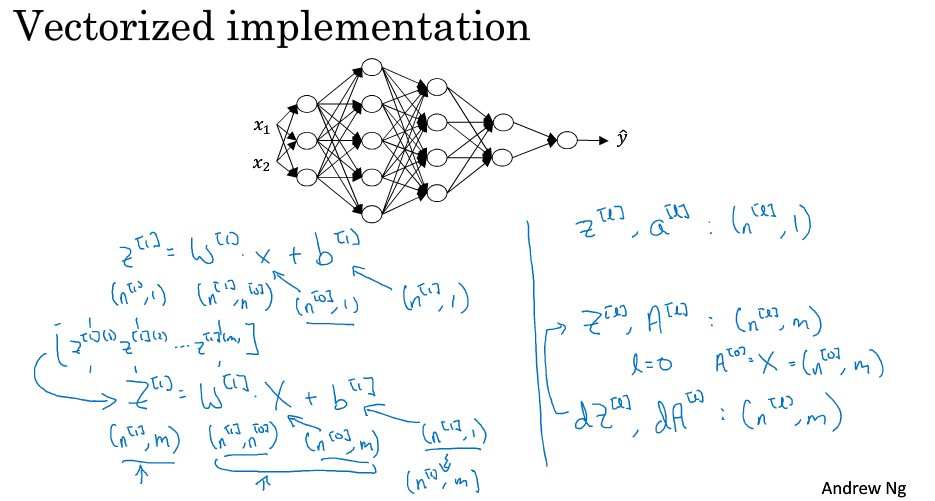 Vectorized implementation
x₁
x₂
ŷ
z^[1] = W^[1] · x + b^[1]
(n^[1], 1) (n^[1], n^[0]) (n^[0], 1) (n^[1], 1)
[z^[1](1) z^[1](2) ... z^[1](m)]
Z^[1] = W^[1] · X + b^[1]
(n^[1], m) (n^[1], n^[0]) (n^[0], m) (n^[1], 1)
(n^[1], m)
z^[l], a^[l] : (n^[l], 1)
Z^[l], A^[l] : (n^[l], m)
l=0 A^[0] = X = (n^[0], m)
dZ^[l], dA^[l] : (n^[l], m)
Andrew Ng